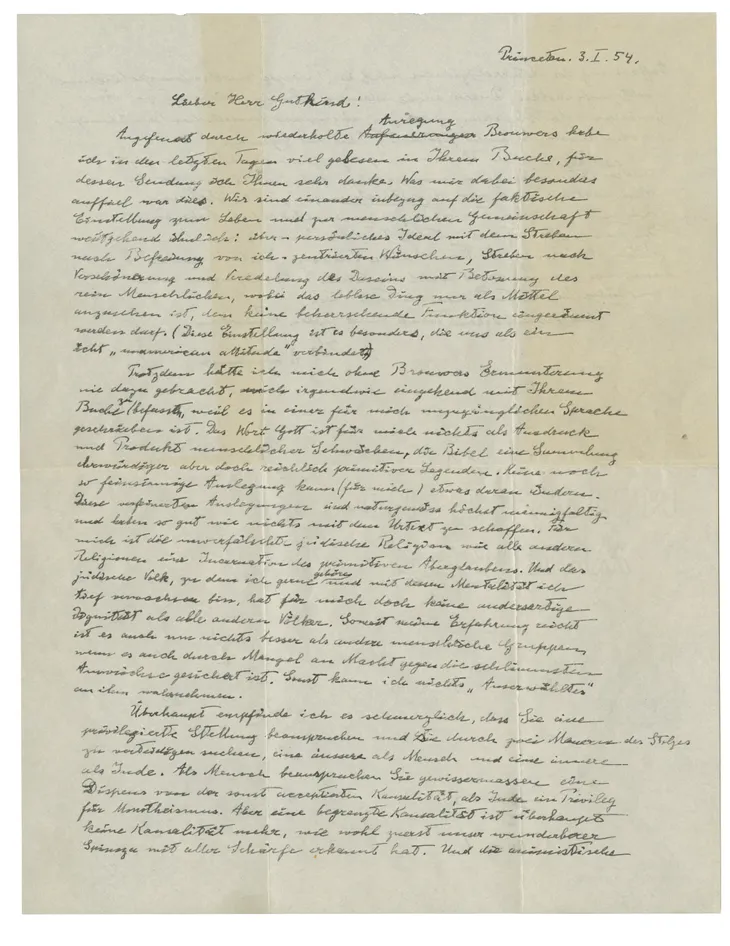 Princeton. 3. I. 54.
Lieber Herr Gutkind!
Anregung
Angefeuert durch wiederholte Brouwers habe
ich in den letzten Tagen viel gelesen in Ihrem Buche, für
dessen Sendung ich Ihnen sehr danke. Was mir dabei besonders
auffiel war dies. Wir sind einander inbezug auf die faktische
Einstellung zum Leben und zur menschlichen Gemeinschaft
weitgehend ähnlich: über-persönliches Ideal mit dem Streben
nach Befreiung von ich-zentrierten Wünschen, Streben nach
Verschönerung und Veredelung des Daseins mit Betonung des
rein Menschlichen, wobei das leblose Ding nur als Mittel
anzusehen ist, dem keine beherrschende Funktion eingeräumt
werden darf. (Diese Einstellung ist es besonders, die uns als ein
echt „unamerican attitude" verbindet)
Trotzdem hätte ich mich ohne Brouwers Ermunterung
nie dazu gebracht, mich irgendwie eingehend mit Ihrem
Buche zu befassen, weil es in einer für mich unzugänglichen Sprache
geschrieben ist. Das Wort Gott ist für mich nichts als Ausdruck
und Produkt menschlicher Schwächen, die Bibel eine Sammlung
ehrwürdiger aber doch reichlich primitiver Legenden. Keine noch
so feinsinnige Auslegung kann (für mich) etwas daran ändern.
Diese verfeinerten Auslegungen sind naturgemäss höchst mannigfaltig
und haben so gut wie nichts mit dem Urtext zu schaffen. Für
mich ist die unverfälschte jüdische Religion wie alle anderen
Religionen eine Incarnation des primitiven Aberglaubens. Und das
jüdische Volk, zu dem ich gerne gehöre und mit dessen Mentalität ich
tief verwachsen bin, hat für mich doch keine andersartige
Dignität als alle anderen Völker. Soweit meine Erfahrung reicht
ist es auch um nichts besser als andere menschliche Gruppen
wenn es auch durch Mangel an Macht gegen die schlimmsten
Auswüchse gesichert ist. Sonst kann ich nichts „Auserwähltes"
an ihm wahrnehmen.
Überhaupt empfinde ich es schmerzlich, dass Sie eine
privilegierte Stellung beanspruchen und Sie durch zwei Mauern des Stolzes
zu verteidigen suchen, eine äussere als Mensch und eine innere
als Jude. Als Mensch beanspruchen Sie gewissermassen eine
Dispens von der sonst acceptierten Kausalität, als Jude ein Privileg
für Monotheismus. Aber eine begrenzte Kausalität ist überhaupt
keine Kausalität mehr, wie wohl zuerst unser wunderbarer
Spinoza mit aller Schärfe erkannt hat. Und die animistische